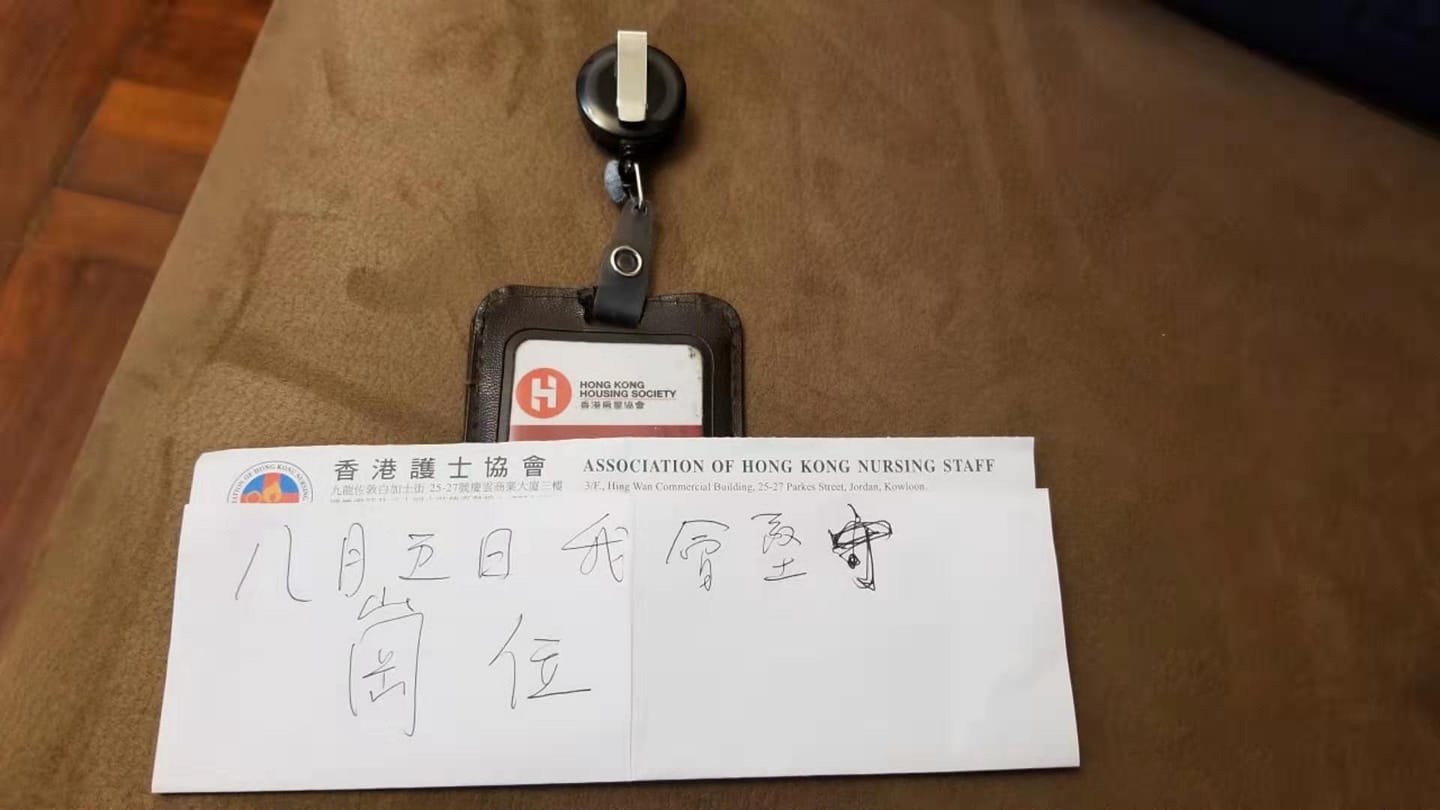 HONG KONG
HOUSING SOCIETY
香港房屋協會
香港護士協會 ASSOCIATION OF HONG KONG NURSING STAFF
九龍佐敦白加士街 25-27號慶雲商業大廈三樓 3/F., Hing Wan Commercial Building, 25-27 Parkes Street, Jordan, Kowloon.
ASSOCIATION OF HONG KONG NURSING
八月五日 我會堅守
崗位